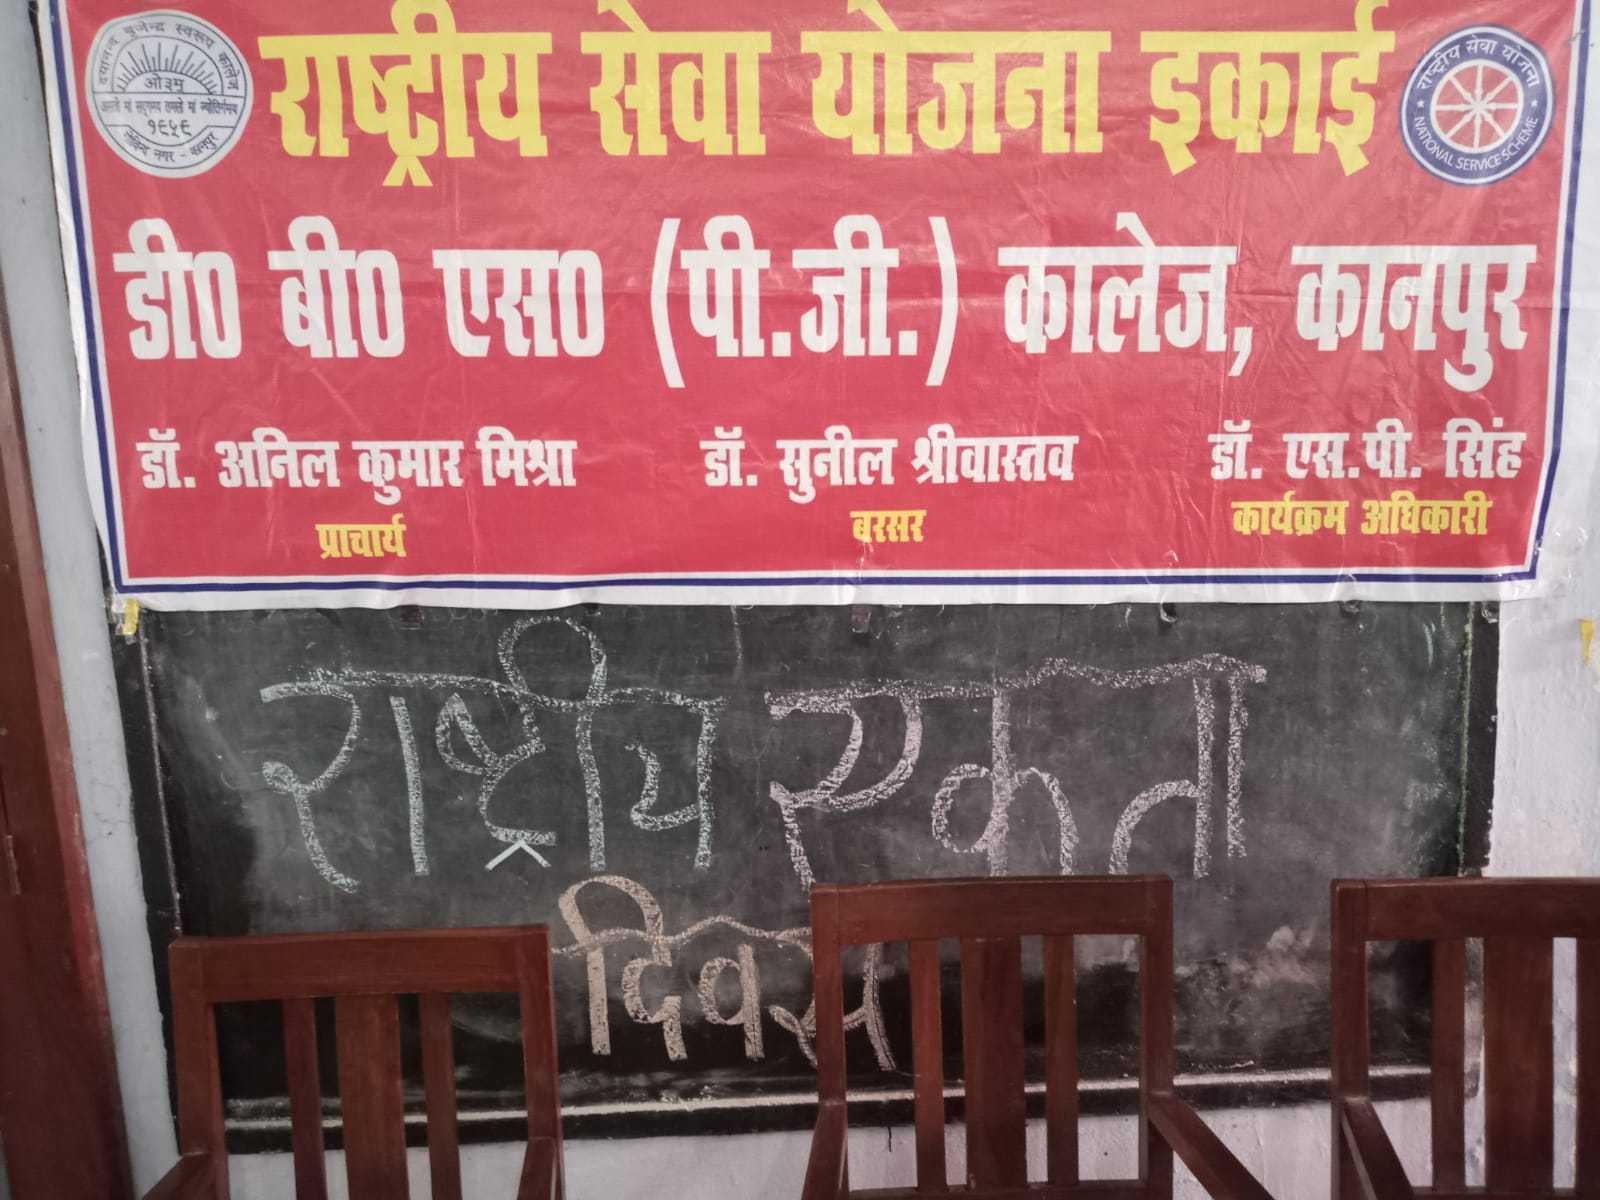 दयानन्द बृजेन्द्र स्वरूप कालेज
ओ३म्
असतो मा सद्गमय तमसो मा ज्योतिर्गमय
१९५९
गोविन्द नगर - कानपुर
राष्ट्रीय सेवा योजना इकाई
राष्ट्रीय सेवा योजना
NATIONAL SERVICE SCHEME
डी0 बी0 एस0 (पी.जी.) कालेज, कानपुर
डॉ. अनिल कुमार मिश्रा डॉ. सुनील श्रीवास्तव डॉ. एस.पी. सिंह
प्राचार्य बरसर कार्यक्रम अधिकारी
राष्ट्रीय एकता
दिवस